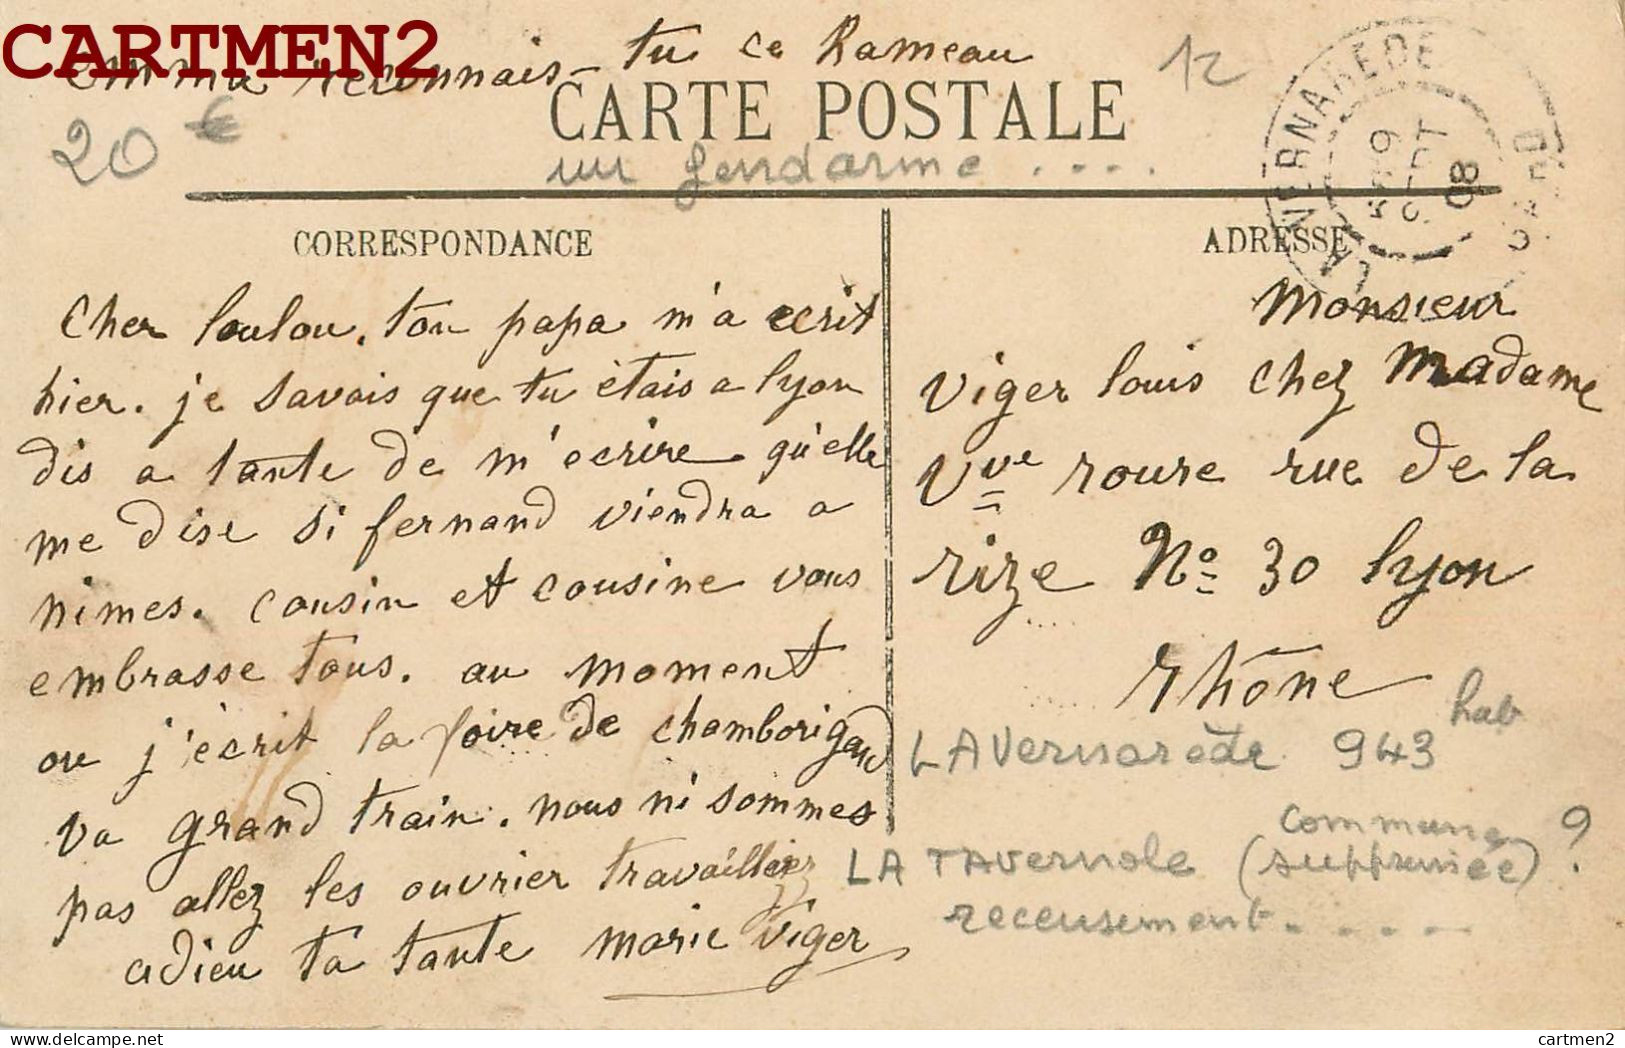 CARTMEN2
tu ce Rameau
12
20 €
CARTE POSTALE
un gendarme ....
LA VERNAREDE
9
SEPT
08
GARD
CORRESPONDANCE
Cher loulou, ton papa m'a ecrit
hier. je savais que tu étais a lyon
dis a tante de m'ecrire qu'elle
me dise si fernand viendra a
nimes. cousin et cousine vous
embrasse tous. au moment
ou j'écrit la foire de chamborigaud
va grand train. nous ni sommes
pas allez les ouvrier travaillez
adieu ta tante marie Viger
ADRESSE
Monsieur
Viger louis chez Madame
Vve roure rue de la
rize No 30 lyon
Rhône
LA Vernarède 943 hab
LA TAvernole (commune supprimée) ?
recensement.....
cartmen2